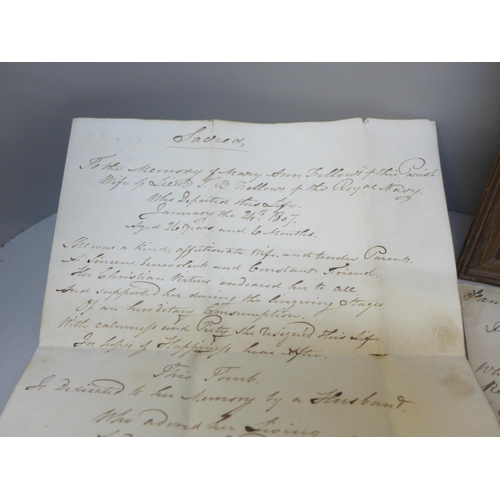 Sacred,
To the Memory of Mary Ann Fellows of this Parish
Wife of Lieut. T. B. Fellows of the Royal Navy
Who departed this Life.
January the 24th. 1807
Aged 26 Years and 6 Months.
She was a kind, affectionate Wife, and tender Parent.
A Sincere, benevolent and Constant Friend.
Her Christian Virtues endeared her to all
And supported her during the lingering Stages
Of an hereditary Consumption,
With calmness and Piety she resigned this Life
In hopes of Happiness here-After.
This Tomb.
Is Desicated to her Memory by a Husband.
Who adored her Living